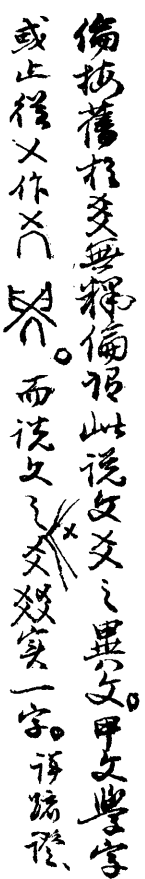 倫按舊於爻無釋倫謂此說文爻之異文。甲文學字
或止從乂作。而說文之爻㸚実一字。詳疏證、